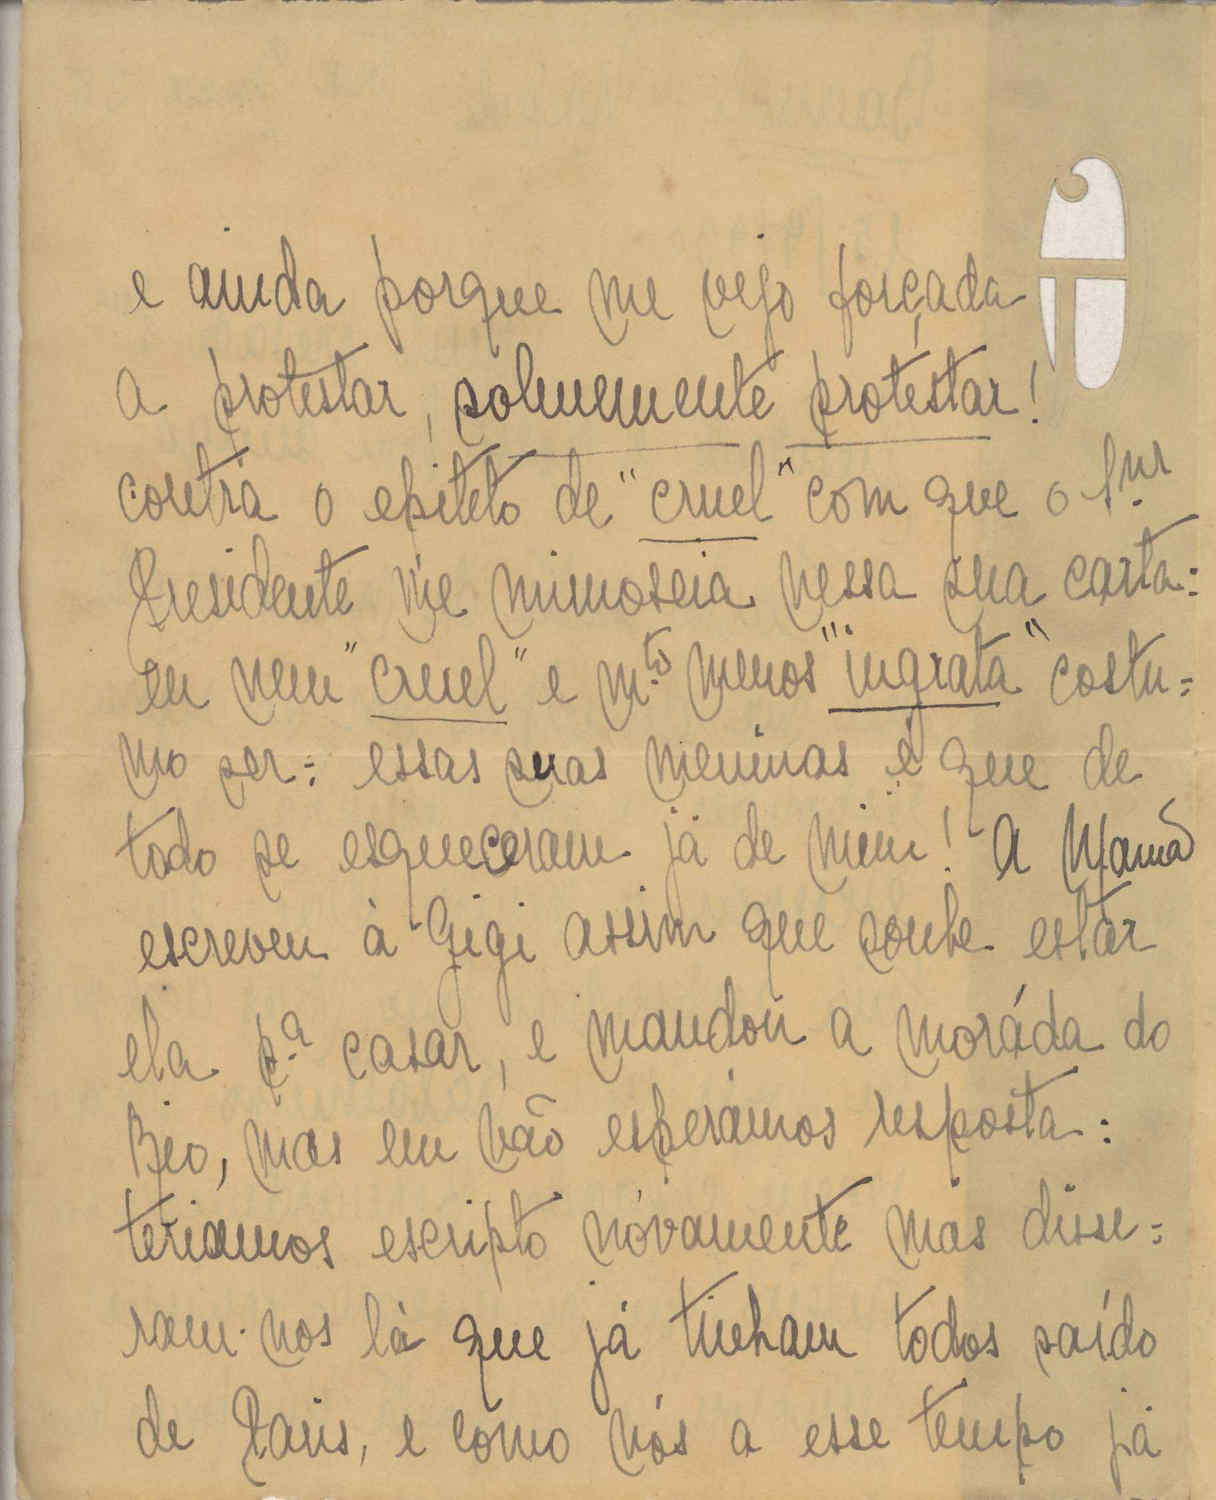 e ainda porque me vejo forçada
a protestar, solmemente protestar!
contra o epiteto de "cruel" com que o Snr
Presidente me mimoseia nessa sua carta:
eu nem "cruel" e mto menos "ingrata" costu=
mo ser: essas suas meninas é que de
todo se esqueceram já de mim! A Mamã
escreveu à Gigi assim que soube estar
ela pa casar, e mandou a moráda do
mas em vão esperámos resposta:
teriamos escripto nóvamente mas disse=
ram-nos lá que já tinham todos saído
de Paris, e como nós a esse tempo já